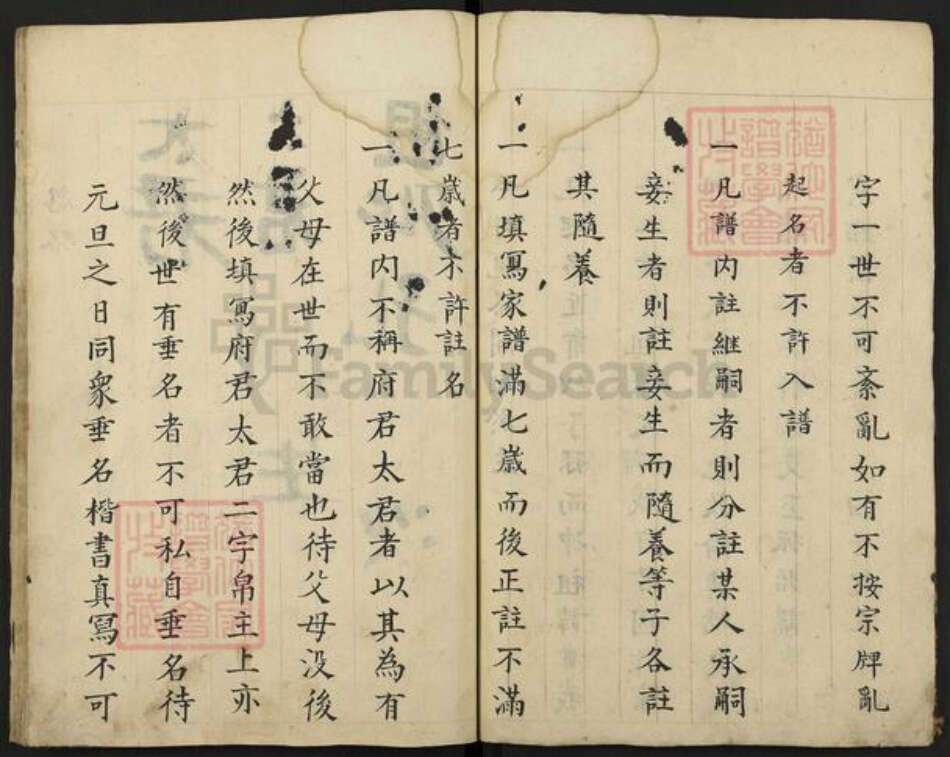 字一世不可紊亂如有不按宗牌亂
起名者不許入譜
一凡譜内註継嗣者則分註某人承嗣
妾生者則註妾生而隨養等子各註
其隨養
一凡填寫家譜滿七歲而後正註不滿
七歲者不許註名
一凡譜内不稱府君太君者以其為有
父母在世而不敢當也待父母没後
然後填寫府君太君二字帛主上亦
然後世有垂名者不可私自垂名待
元旦之日同衆垂名楷書真寫不可
FamilySearch